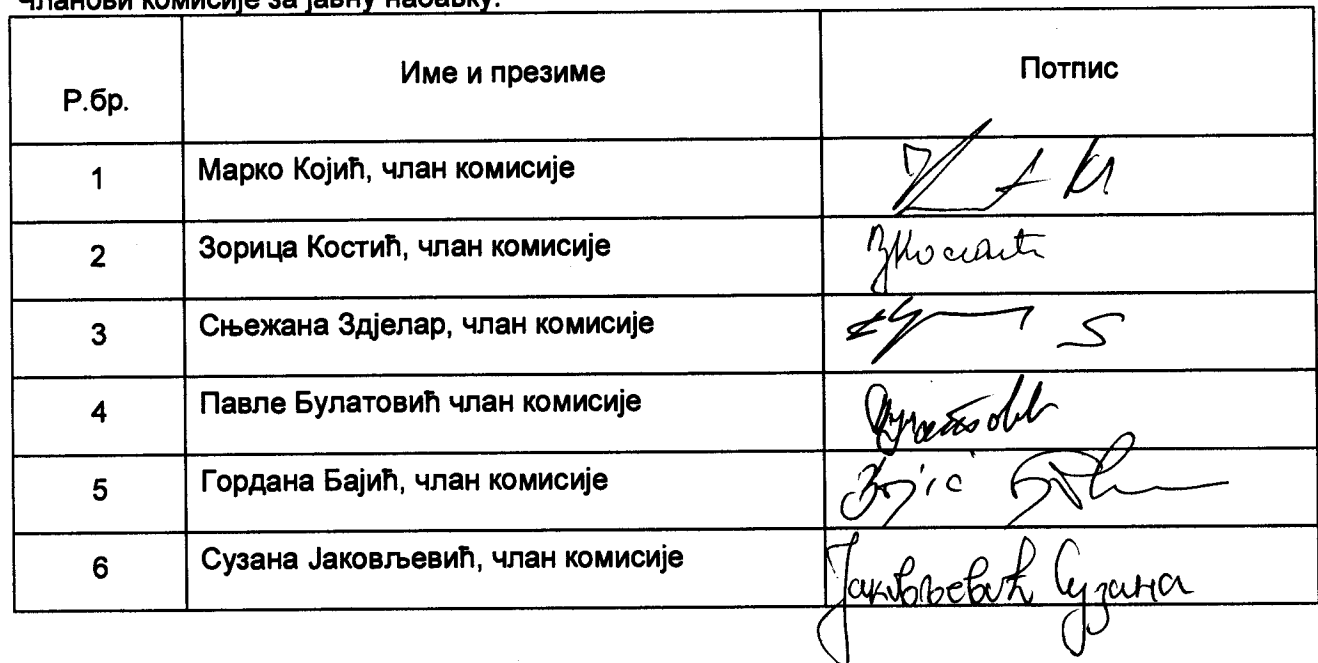 Чланови комисије за јавну набавку:
Р.бр. Име и презиме Потпис
1 Марко Којић, члан комисије
2 Зорица Костић, члан комисије ЗКостић
3 Сњежана Здјелар, члан комисије
4 Павле Булатовић члан комисије
5 Гордана Бајић, члан комисије
6 Сузана Јаковљевић, члан комисије Јаковљевић Сузана